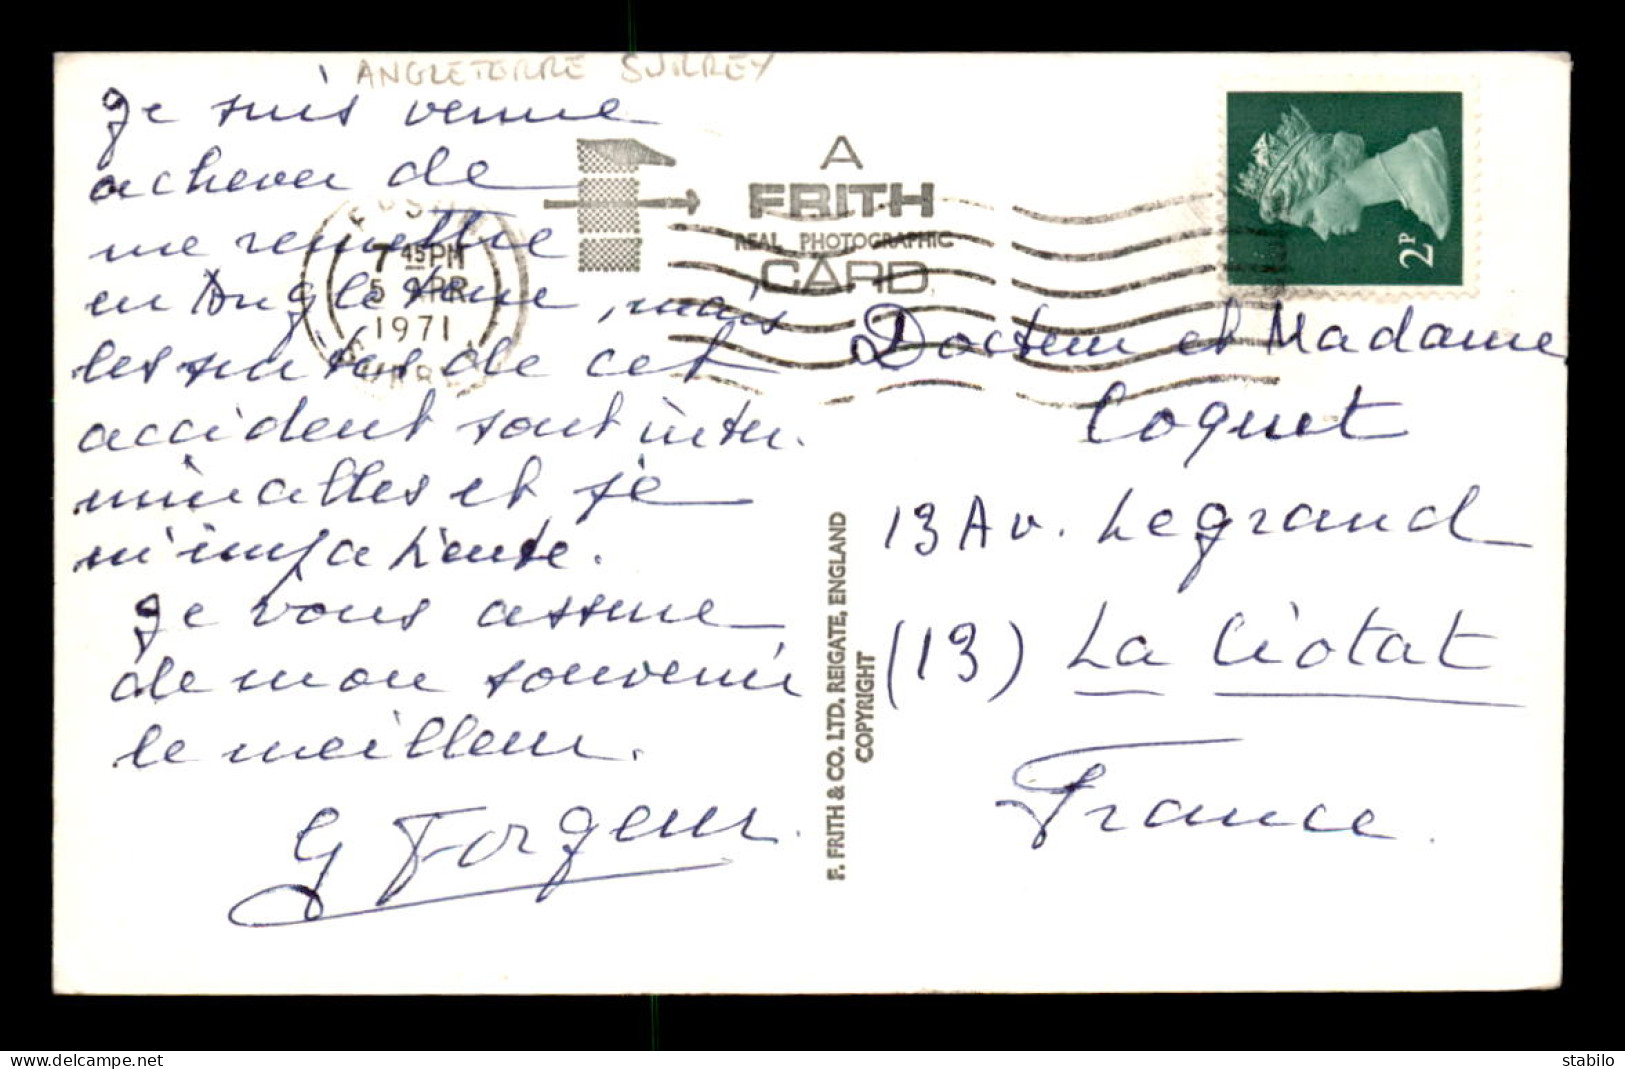 ANGLETERRE SURREY
Je suis venue
achever de
me remettre
en Angleterre, mais
les suites de cet
accident sont inter-
minables et je
m'impatiente.
Je vous assure
de mon souvenir
le meilleur.
G Forgeur.
7 45 PM
5 APR
1971
SURREY
A
FRITH
REAL PHOTOGRAPHIC
CARD
F. FRITH & CO. LTD. REIGATE, ENGLAND
COPYRIGHT
2P
Docteur et Madame
Coquet
13 Av. Legrand
(13) La Ciotat
France.
www.delcampe.net
stabilo